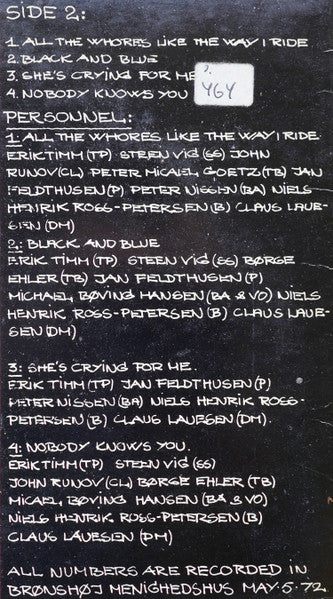 SIDE 2:
1. ALL THE WHORES LIKE THE WAY I RIDE
2. BLACK AND BLUE
3. SHE'S CRYING FOR ME
4. NOBODY KNOWS YOU
464
PERSONNEL:
1. ALL THE WHORES LIKE THE WAY I RIDE.
ERIK TIMM (TP) STEEN VIG (SS) JOHN
RUNOV (CL) PETER MICAEL GOETZ (TB) JAN
FELDTHUSEN (P) PETER NISSEN (BA) NIELS
HENRIK ROSS-PETERSEN (B) CLAUS LAUE-
SEN (DM)
2: BLACK AND BLUE
ERIK TIMM (TP) STEEN VIG (SS) BØRGE
EHLER (TB) JAN FELDTHUSEN (P)
MICHAEL BØVING HANSEN (BA & VO) NIELS
HENRIK ROSS-PETERSEN (B) CLAUS LAUE-
SEN (DM)
3: SHE'S CRYING FOR ME.
ERIK TIMM (TP) JAN FELDTHUSEN (P)
PETER NISSEN (BA) NIELS HENRIK ROSS-
PETERSEN (B) CLAUS LAUESEN (DM).
4: NOBODY KNOWS YOU.
ERIK TIMM (TP) STEEN VIG (SS)
JOHN RUNOV (CL) BØRGE EHLER (TB)
MICAEL BØVING HANSEN (BA & VO)
NIELS HENRIK ROSS-PETERSEN (B)
CLAUS LAUESEN (DM)
ALL NUMBERS ARE RECORDED IN
BRØNSHØJ MENIGHEDSHUS MAY·5·72.